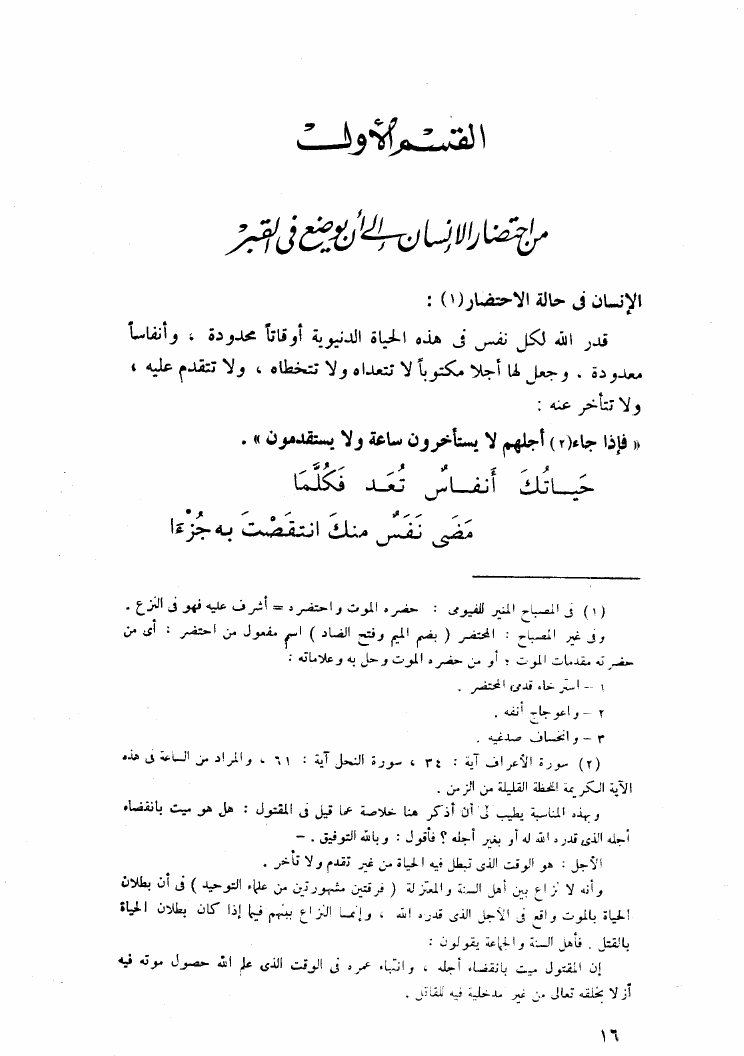 القسم الأول
من احتضار الإنسان إلى أن يوضع فى القبر
الإنسان فى حالة الاحتضار(١) :
قدر الله لكل نفس فى هذه الحياة الدنيوية أوقاتاً محدودة ، وأنفاساً
معدودة . وجعل لها أجلا مكتوباً لا تتعداه ولا تتخطاه ، ولا تتقدم عليه ،
ولا تتأخر عنه :
« فإذا جاء(٢) أجلهم لا يستأخرون ساعة ولا يستقدمون » .
حَيـاتُكَ أَنفـاسٌ تُعَـد فَكُلَّمَا
مَضَى نَفَسٌ منكَ انتقَصْتَ به جُزْءَا
(١) فى المصباح المنير للفيومى : حضره الموت واحتضره = أشرف عليه فهو فى النزع .
وفى غير المصباح : المحتضر ( بضم الميم وفتح الضاد ) اسم مفعول من احتضر : أى من
حضرته مقدمات الموت ؛ أو من حضره الموت وحل به وعلاماته :
١ – استرخاء قدمى المحتضر .
٢ – واعوجاج أنفه .
٣ – وانخساف صدغيه .
(٢) سورة الأعراف آية : ٣٤ ، سورة النحل آية : ٦١ ، والمراد من الساعة فى هذه
الآية الكريمة اللحظة القليلة من الزمن .
وبهذه المناسبة يطيب لى أن أذكر هنا خلاصة عما قيل فى المقتول : هل هو ميت بانقضاء
أجله الذى قدره الله له أو بغير أجله ؟ فأقول : وبالله التوفيق . –
الأجل : هو الوقت الذى تبطل فيه الحياة من غير تقدم ولا تأخر .
وأنه لا نزاع بين أهل السنة والمعتزلة ( فرقتين مشهورتين من علماء التوحيد ) فى أن بطلان
الحياة بالموت واقع فى الأجل الذى قدره الله ، وإنما النزاع بينهم فيما إذا كان بطلان الحياة
بالقتل . فأهل السنة والجماعة يقولون :
إن المقتول ميت بانقضاء أجله ، وانتهاء عمره فى الوقت الذى علم الله حصول موته فيه
أزلا بخلقه تعالى من غير مدخلية فيه للقاتل .
١٦